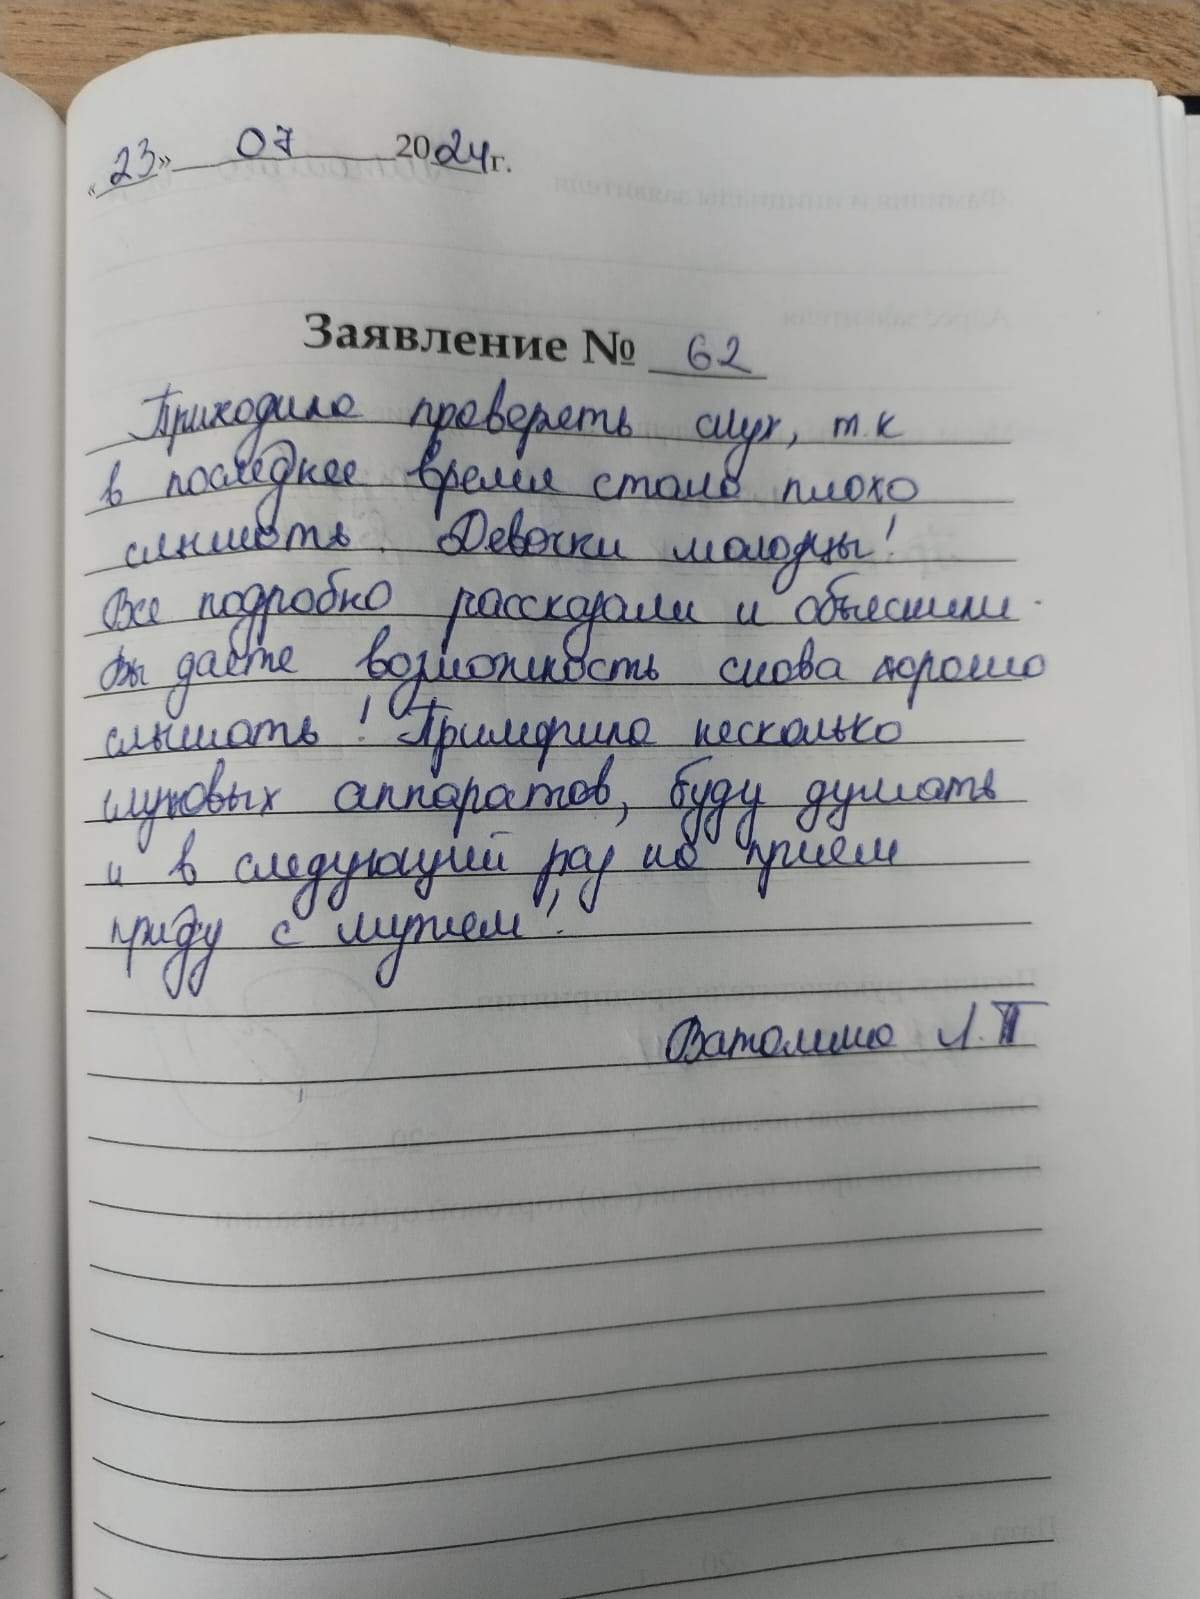 «23» 07 2024г.
Заявление № 62
Приходила проверять слух, т.к
в последнее время стала плохо
слышать. Девочки молодцы!
Все подробно рассказали и объяснили.
Вы даете возможность снова хорошо
слышать! Примерила несколько
слуховых аппаратов, буду думать
и в следующий раз на прием
приду с мужем!
Ватолина Л.П